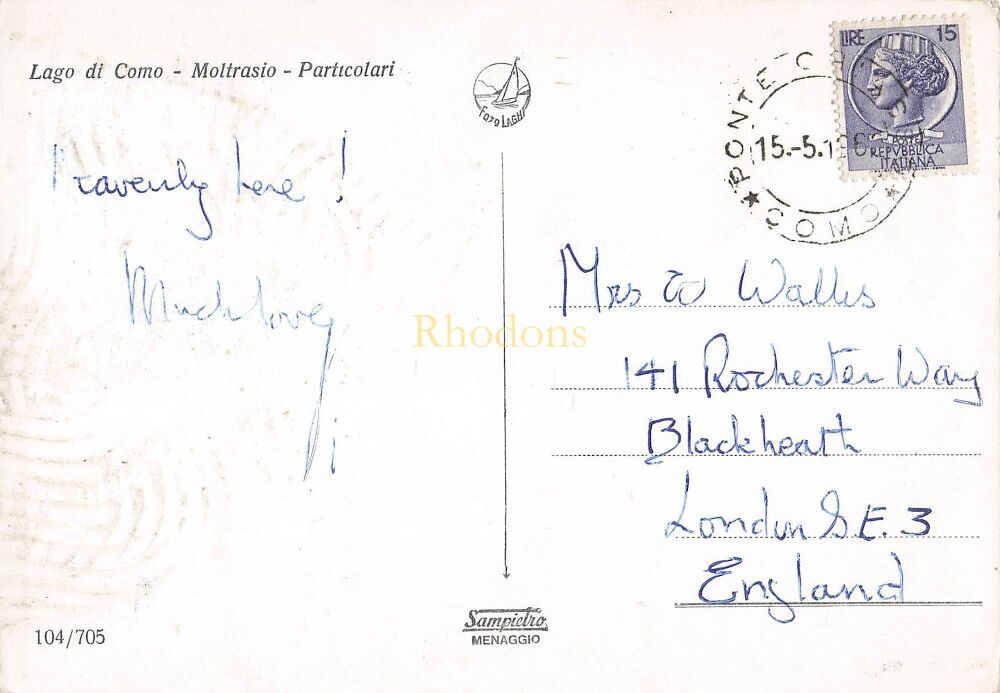 Lago di Como - Moltrasio - Particolari
FOTO LAGHI
LIRE 15
POSTE
REPVBBLICA
ITALIANA
PONTE
15.-5.19
COMO
Heavenly here!
Much love,
Rhodons
Mrs W Wallis
141 Rochester Way
Blackheath
London S.E.3
England
Sampietro
MENAGGIO
104/705